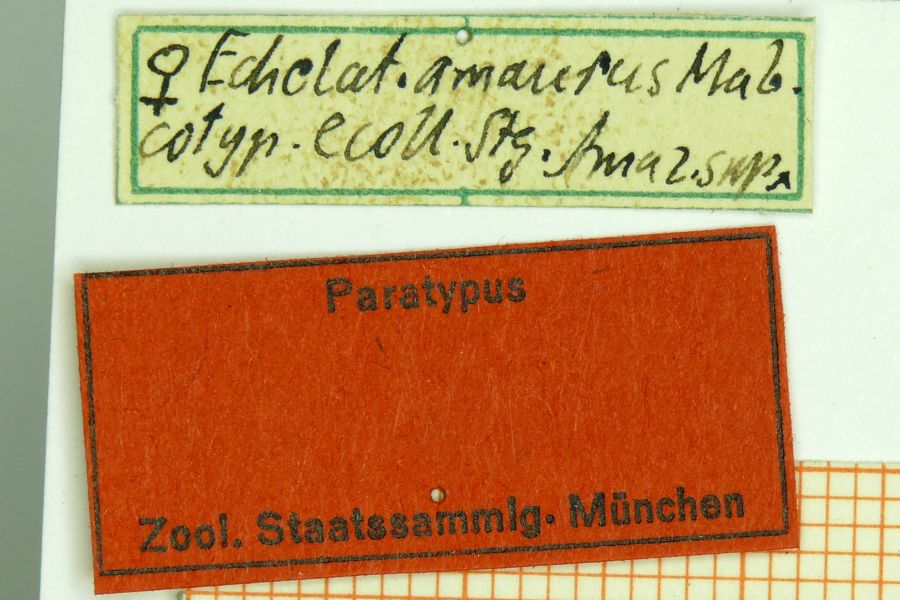 ♀ Echelat. amaurus Mab.
cotyp. e coll. Stg. Amaz. sup.
Paratypus
Zool. Staatssammlg. München